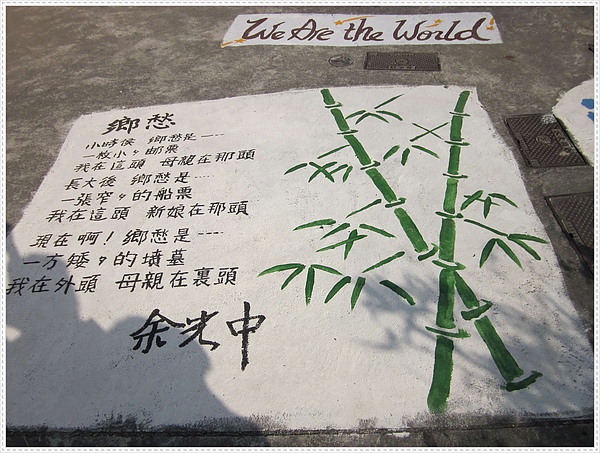 We Are the World!
鄉愁
小時候 鄉愁是……
一枚小々邮票
我在這頭 母親在那頭
長大後 鄉愁是……
一張窄々的船票
我在這頭 新娘在那頭
現在啊！鄉愁是……
一方矮々的墳墓
我在外頭 母親在裏頭
余光中